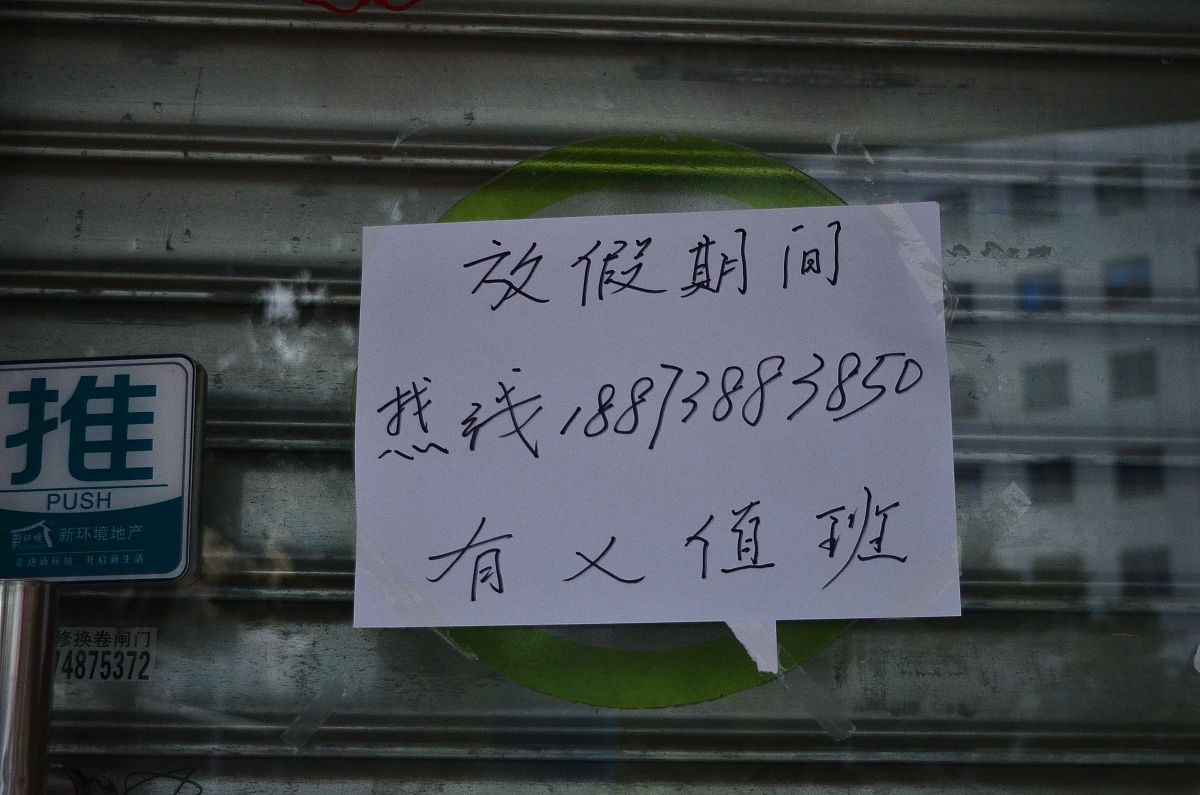 放假期间
热线18873883850
有人值班
推
PUSH
新环境地产
走进新环境 开启新生活
修换卷闸门
74875372